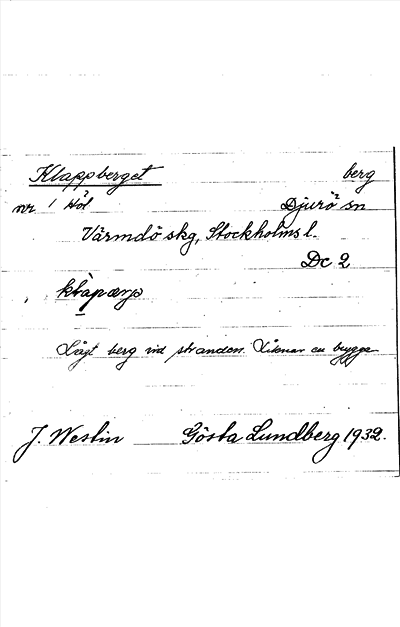 Klappberget berg
nr 1 Hol Djurö sn
Värmdö skg, Stockholms l.
Dc 2
Lågt berg vid stranden. Liknar en brygga
J. Westin Gösta Lundberg 1932.